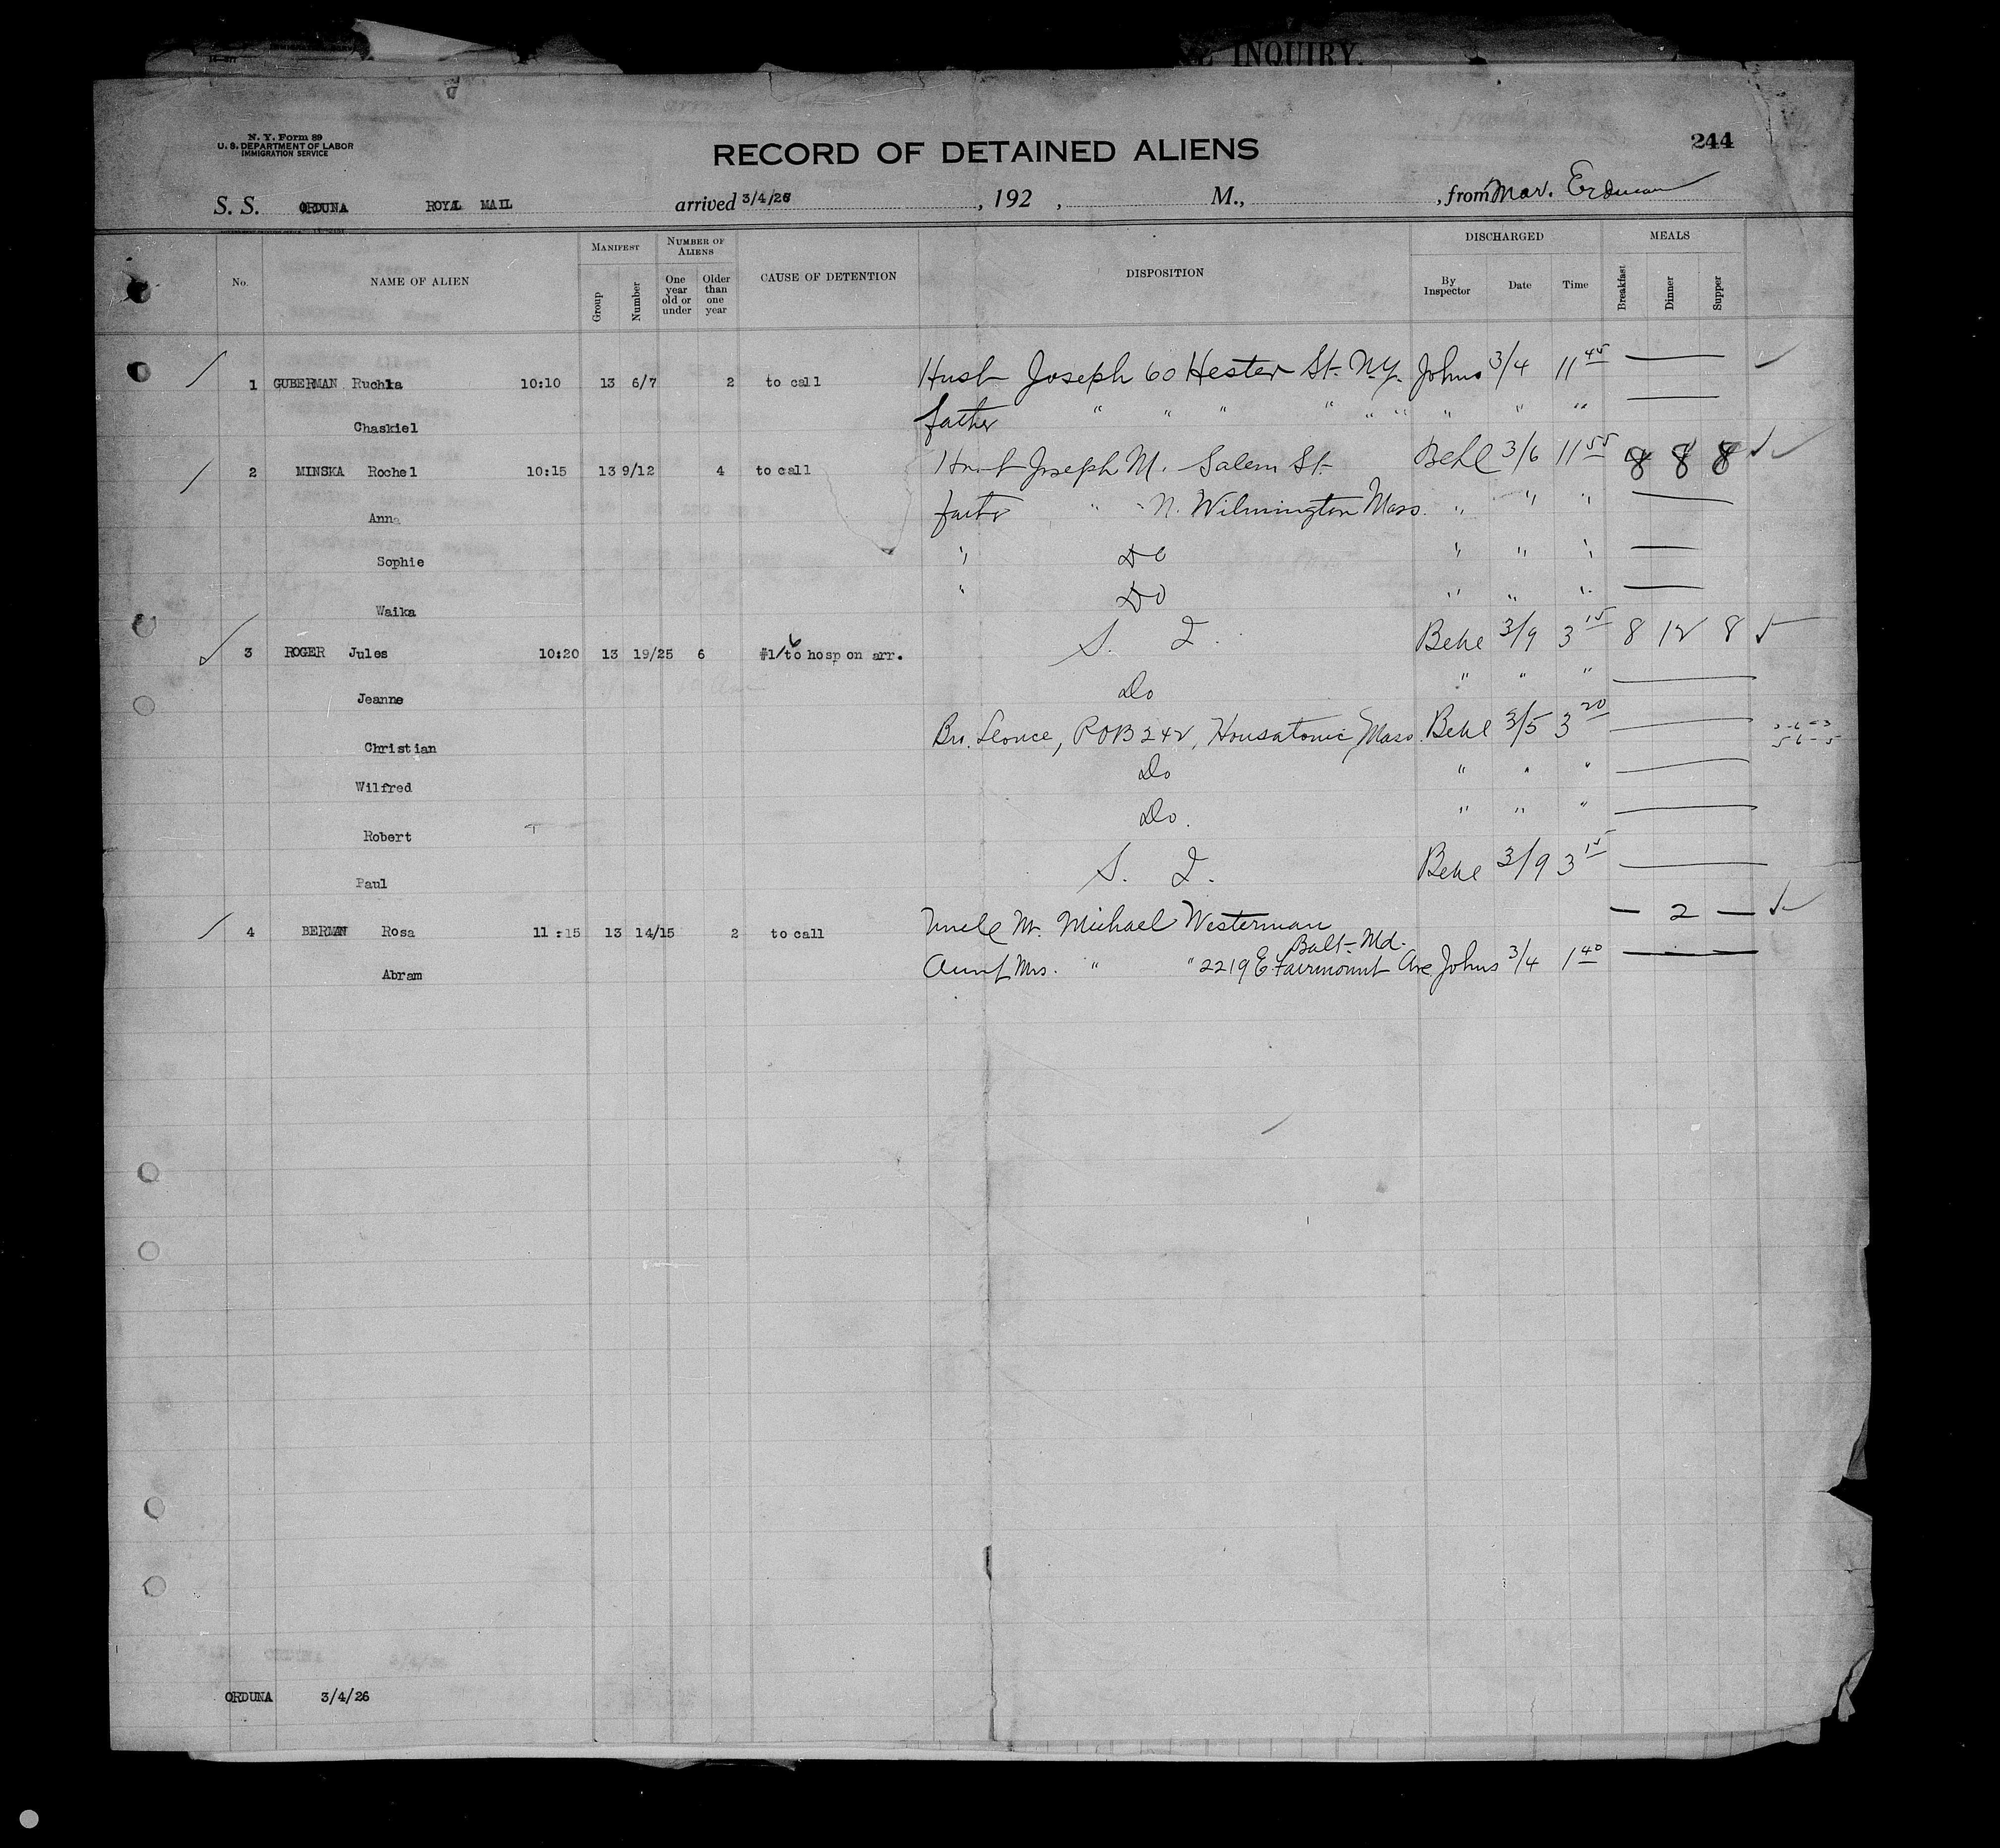 INQUIRY.
N. Y. Form 89
U. S. DEPARTMENT OF LABOR
IMMIGRATION SERVICE
RECORD OF DETAINED ALIENS
244
S. S. ORDUNA ROYAL MAIL arrived 3/4/26, 192 , M., , from Mar. Erdman
No. NAME OF ALIEN MANIFEST Group Number NUMBER OF ALIENS One year old or under Older than one year CAUSE OF DETENTION DISPOSITION DISCHARGED By Inspector Date Time MEALS Breakfast Dinner Supper
1 GUBERMAN Ruchla 10:10 13 6/7 2 to call Husb Joseph 60 Hester St. N.Y. Johns 3/4 11 45 —
Chaskiel father " " " " " " " " " —
2 MINSKA Rochel 10:15 13 9/12 4 to call Husb Joseph M. Salem St. Behl 3/6 11 55 8 8 8 ✓
Anna father " " N. Wilmington Mass. " " " —
Sophie " Do " " " —
Waika " Do " " " —
3 ROGER Jules 10:20 13 19/25 6 #1/6 to hosp on arr. S. I. Behl 3/9 3 15 8 12 8 ✓
Jeanne Do " " " —
Christian Bro. Leonce, POB 242, Housatonic Mass. Behl 3/5 3 20 —
Wilfred Do " " " —
Robert Do. " " " —
Paul S. I. Behl 3/9 3 15 —
4 BERMAN Rosa 11:15 13 14/15 2 to call Uncle Mr. Michael Westerman — 2 — ✓
Balt- Md.
Abram Aunt Mrs. " " 2219 E. Fairmount Ave Johns 3/4 1 40 —
ORDUNA 3/4/26